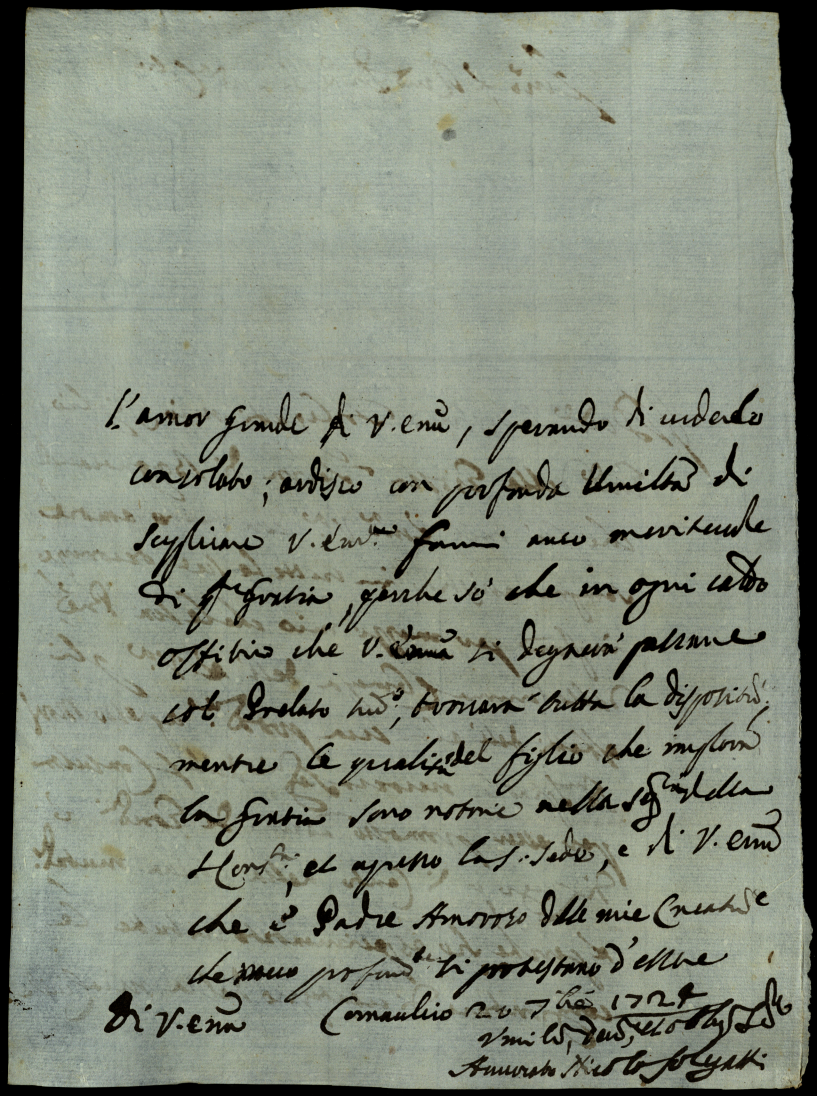 L'amor grande di V. Em̃a, sperando di vederlo
consolato; ardisco con profonda Umiltà di
supplicare V. Em.ma farmi anco meritevole
di q.ta Gratia, perche sò che in ogni caldo
offitio che V. Em̃a si degnerà passare
col Prelato sud.o, trovarà tutta la dispositõ,
mentre le qualità del figlio che implora
la Gratia sono notorie nella Seg.ria della
et apresso la S. Sede, e di V. Em̃a
che è Padre Amoroso delle mie Creature
che meco profond.te si protestano d'essere
Di V. Em̃a Comachio 20 7bre 1724
Umil.o, Dev.o, et Obblig.o Se.re
Nicolo